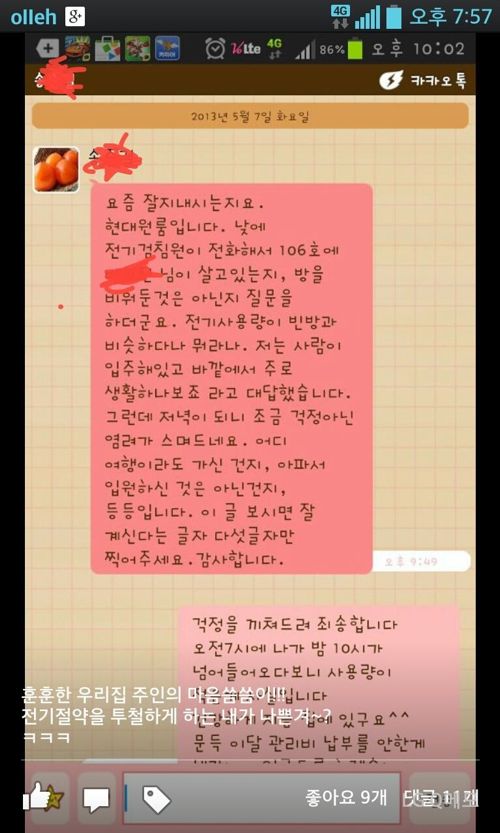 olleh 8 4G 오후 7:57
Lte 4G 86% 오후 10:02
카카오톡
2013년 5월 7일 화요일
요즘 잘지내시는지요.
현대원룸입니다. 낮에
전기검침원이 전화해서 106호에
님이 살고있는지, 방을
비워둔것은 아닌지 질문을
하더군요. 전기사용량이 빈방과
비슷하다나 뭐라나. 저는 사람이
입주해있고 바깥에서 주로
생활하나보죠 라고 대답했습니다.
그런데 저녁이 되니 조금 걱정아닌
염려가 스며드네요. 어디
여행이라도 가신 건지, 아파서
입원하신 것은 아닌건지,
등등입니다. 이 글 보시면 잘
계신다는 글자 다섯글자만
찍어주세요.감사합니다.
오후 9:49
걱정을 끼쳐드려 죄송합니다
오전7시에 나가 밤 10시가
넘어들어오다보니 사용량이
훈훈한 우리집 주인의 마음씀씀이!!!
전기절약을 투철하게 하는 내가 나쁜겨~?
ㅋㅋㅋ
있구요^^
문득 이달 관리비 납부를 안한게
좋아요 9개 댓글 11개